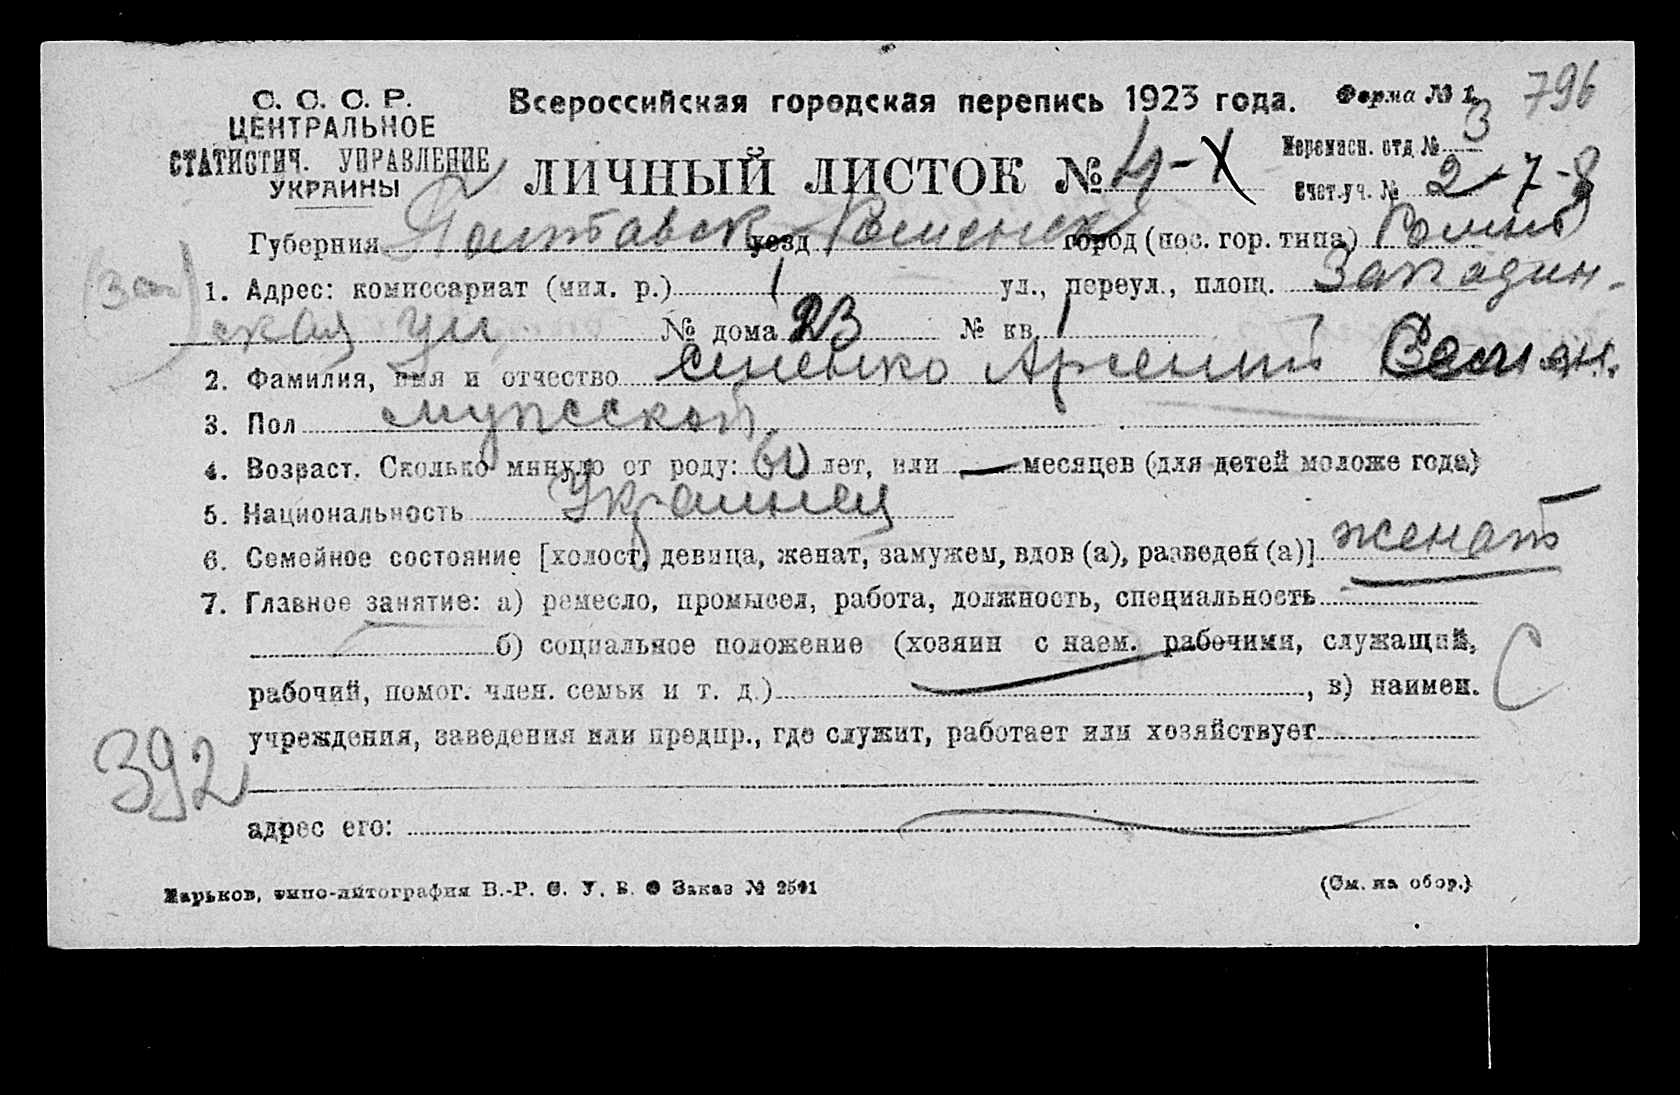 С. С. С. Р.
ЦЕНТРАЛЬНОЕ
СТАТИСТИЧ. УПРАВЛЕНИЕ
УКРАИНЫ
Всероссийская городская перепись 1923 года.
Форма № 1.
796
ЛИЧНЫЙ ЛИСТОК № 4-X
Переписн. отд. № 3
Счет.-уч. № 2-7-8
Губерния Полтавск уезд Роменск город (пос. гор. типа) Ромны
1. Адрес: комиссариат (мил. р.) 1 ул., переул., площ.
ская ул № дома 23 № кв. 1
2. Фамилия, имя и отчество Арсений
3. Пол мужской
4. Возраст. Сколько минуло от роду: 60 лет, или — месяцев (для детей моложе года)
5. Национальность Украинец
6. Семейное состояние [холост, девица, женат, замужем, вдов (а), разведен (а)] женат
7. Главное занятие: а) ремесло, промысел, работа, должность, специальность
б) социальное положение (хозяин с наем. рабочими, служащий,
рабочий, помог. член. семьи и т. д.) , в) наимен.
С
учреждения, заведения или предпр., где служит, работает или хозяйствует
392
адрес его:
Харьков, типо-литография В.-Р. С. У. В. О Заказ №
(См. на обор.)